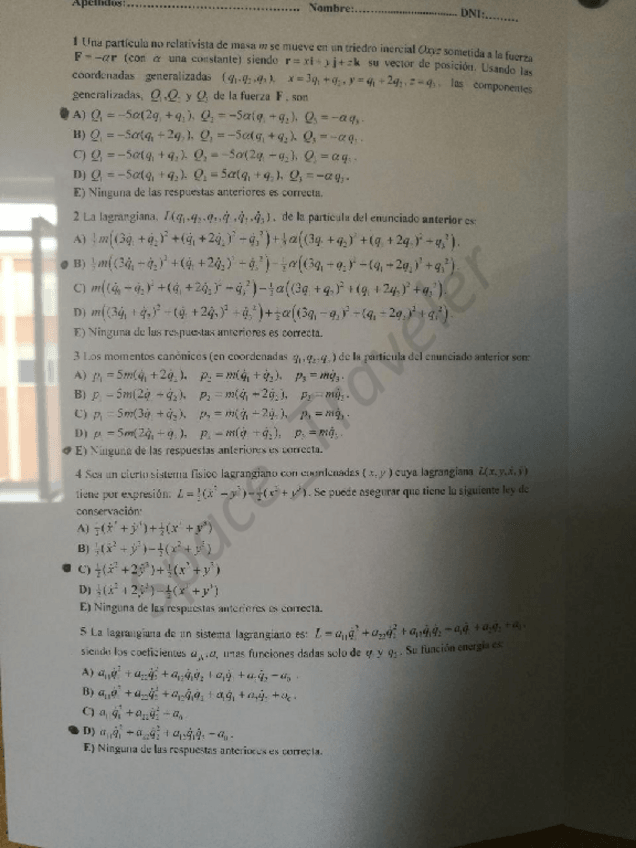 Apellidos:.......... Nombre:.......... DNI:........
1 Una partícula no relativista de masa m se mueve en un triedro inercial Oxyz sometida a la fuerza
F = −αr (con α una constante) siendo r = xi + yj + zk su vector de posición. Usando las
coordenadas generalizadas (q₁,q₂,q₃), x = 3q₁ + q₂, y = q₁ + 2q₂, z = q₃, las componentes
generalizadas, Q₁,Q₂ y Q₃ de la fuerza F, son
A) Q₁ = −5α(2q₁ + q₂), Q₂ = −5α(q₁ + q₂), Q₃ = −αq₃.
B) Q₁ = −5α(q₁ + 2q₂), Q₂ = −5α(q₁ + q₂), Q₃ = −αq₃.
C) Q₁ = −5α(q₁ + q₂), Q₂ = −5α(2q₁ − q₂), Q₃ = αq₃.
D) Q₁ = −5α(q₁ + q₂), Q₂ = 5α(q₁ + q₂), Q₃ = −αq₃.
E) Ninguna de las respuestas anteriores es correcta.
2 La lagrangiana, L(q₁,q₂,q₃,q̇₁,q̇₂,q̇₃), de la partícula del enunciado anterior es:
A) ½m((3q̇₁ + q̇₂)² + (q̇₁ + 2q̇₂)² + q̇₃²) + ½α((3q₁ + q₂)² + (q₁ + 2q₂)² + q₃²).
B) ½m((3q̇₁ + q̇₂)² + (q̇₁ + 2q̇₂)² + q̇₃²) − ½α((3q₁ + q₂)² + (q₁ + 2q₂)² + q₃²).
C) m((q̇₁ + q̇₂)² + (q̇₁ + 2q̇₂)² + q̇₃²) − ½α((3q₁ + q₂)² + (q₁ + 2q₂)² + q₃²).
D) m((3q̇₁ + q̇₂)² + (q̇₁ + 2q̇₂)² + q̇₃²) + ½α((3q₁ − q₂)² + (q₁ + 2q₂)² + q₃²).
E) Ninguna de las respuestas anteriores es correcta.
3 Los momentos canónicos (en coordenadas q₁,q₂,q₃) de la partícula del enunciado anterior son:
A) p₁ = 5m(q̇₁ + 2q̇₂), p₂ = m(q̇₁ + q̇₂), p₃ = mq̇₃.
B) p₁ = 5m(2q̇₁ + q̇₂), p₂ = m(q̇₁ + 2q̇₂), p₃ = mq̇₃.
C) p₁ = 5m(3q̇₁ + q̇₂), p₂ = m(q̇₁ + 2q̇₂), p₃ = mq̇₃.
D) p₁ = 5m(2q̇₁ + q̇₂), p₂ = m(q̇₁ + q̇₂), p₃ = mq̇₃.
E) Ninguna de las respuestas anteriores es correcta.
4 Sea un cierto sistema físico lagrangiano con coordenadas (x,y) cuya lagrangiana L(x,y,ẋ,ẏ)
tiene por expresión: L = ½(ẋ² − ẏ²) − ½(x² + y²). Se puede asegurar que tiene la siguiente ley de
conservación:
A) ½(ẋ² + ẏ²) + ½(x² + y²)
B) ½(ẋ² + ẏ²) − ½(x² + y²)
C) ½(ẋ² + 2ẏ²) + ½(x² + y²)
D) ½(ẋ² + 2ẏ²) − ½(x² + y²)
E) Ninguna de las respuestas anteriores es correcta.
5 La lagrangiana de un sistema lagrangiano es: L = a₁₁q̇₁² + a₂₂q̇₂² + a₁₂q̇₁q̇₂ + a₁q̇₁ + a₂q̇₂ + a₀,
siendo los coeficientes unas funciones dadas solo de q₁ y q₂. Su función energía es:
A) a₁₁q̇₁² + a₂₂q̇₂² + a₁₂q̇₁q̇₂ + a₁q̇₁ + a₂q̇₂ − a₀.
B) a₁₁q̇₁² + a₂₂q̇₂² + a₁₂q̇₁q̇₂ + a₁q̇₁ + a₂q̇₂ + a₀.
C) a₁₁q̇₁² + a₂₂q̇₂² + a₀
D) a₁₁q̇₁² + a₂₂q̇₂² + a₁₂q̇₁q̇₂ − a₀.
E) Ninguna de las respuestas anteriores es correcta.
Space_Traveler